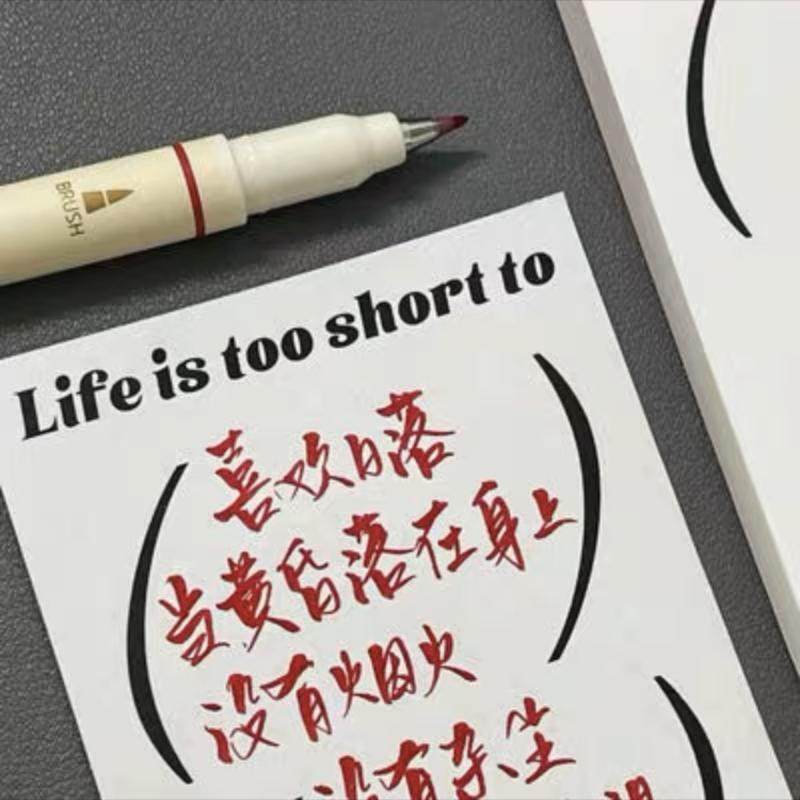 BRUSH
Life is too short to
喜欢日落
当黄昏落在身上
没有烟火
没有杂尘